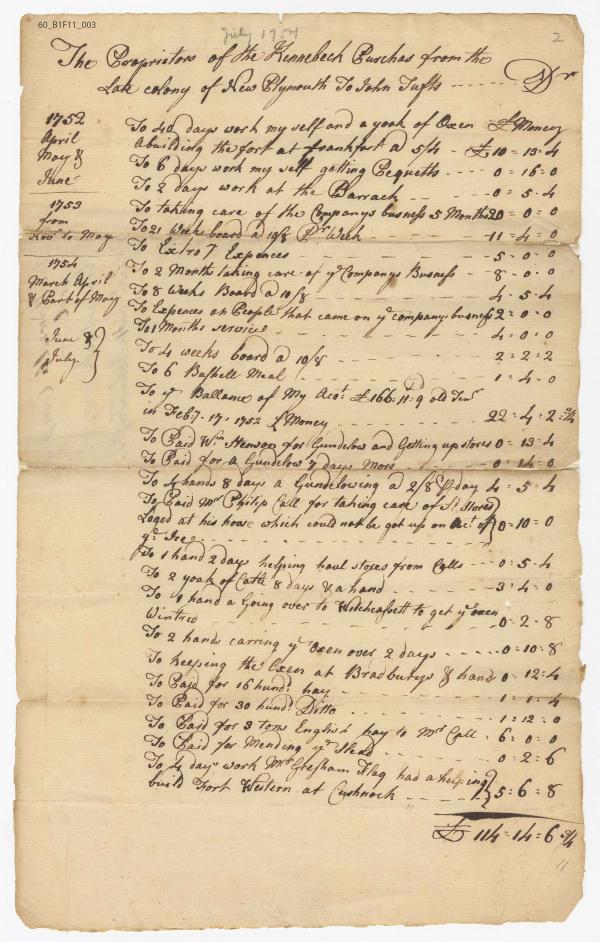 60_B1F11_003
July 1754
2
The Proprietors of the Kennebeck Purchas from the
Late colony of New Plymouth To John Tufts ---- Dr
1752
April
May &
June
To 40 days work my self and a yoak of Oxen £ Money
a building the fort at frankfort a 5/4 - £10=13=4
To 6 days work my self getting Pequetts -- 0=16=0
To 2 days work at the Barrack -- 0=5=4
1753
from
Novr to May
To taking care of the Companys busness 5 Months 20=0=0
To 21 Week board a 10/8 Pr Week -- 11=4=0
To Extro 7 Expences -- 5=0=0
1754
March April
& Part of May
To 2 Months taking care of ye Companys Busness - 8=0=0
To 8 Weeks Board a 10/8 -- 4=5=4
To Expences on People that came on ye companys busness 2=0=0
June &
July
To 1 Months service -- 4=0=0
To 4 weeks board a 10/8 -- 2=2=2
To 6 Bushell Meal -- 1=4=0
To ye Ballance of My Acot £166:11=9 old Tenr
in Feb:7. 17. 1752 £ Money -- 22=4=2=3/4
To Paid Wm for Gundelow and Getting up stores 0=13=4
To Paid for a Gundelow 7 days More -- 0=14=0
To 4 hands 8 days a Gundelowing a 2/8 Pr day 4=5=4
To Paid Mr Philip Call for taking care of Sd Stores
Loged at his house which could not be got up on Act of
ye Ice -- 0=10=0
To 1 hand 2 days helping haul stores from Calls -- 0=5=4
To 2 yoak of Catle 8 days & a hand -- 3=4=0
To 1 hand a Going over to Witchcassett to get ye oxen
Wintred -- 0=2=8
To 2 hands carring ye Oxen over 2 days -- 0=10=8
To keeping the Oxen at Bradburys & hand 0=12=4
To Paid for 16 hundd hay -- 1=1=4
To Paid for 30 hundd Ditto -- 1=12=0
To Paid for 3 tons English hay to Mr Call - 6=0=0
To Paid for Mending ye Slead -- 0=2=6
To 4 days work Mr Gresham Flag had a helping
build Fort Western at Cushnock -- 5=6=8
£ 114=14=6 3/4